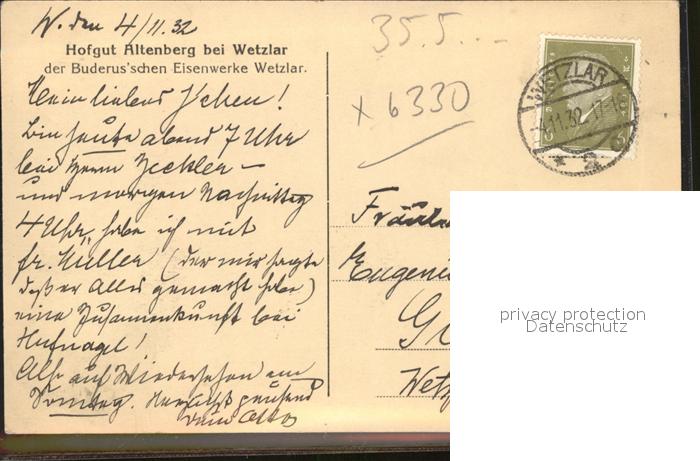 W. den 4/11.32
Hofgut Altenberg bei Wetzlar
der Buderus'schen Eisenwerke Wetzlar.
Mein liebes !
Bin heute abend 7 Uhr
bei Herrn Zeckler –
und morgen Nachmittag
4 Uhr habe ich mit
Hr. Müller (der mir sagte
daß er Alles gemacht habe)
eine Zusammenkunft bei
Hufnagel!
Also auf Wiedersehen am
Sonntag. Herzlichst grüßend
Dein Otto
35.5...
x 6330
WETZLAR
-4.11.32.17-18
* 2
6
Fräulein
Eugenie
Wetz
privacy protection
Datenschutz